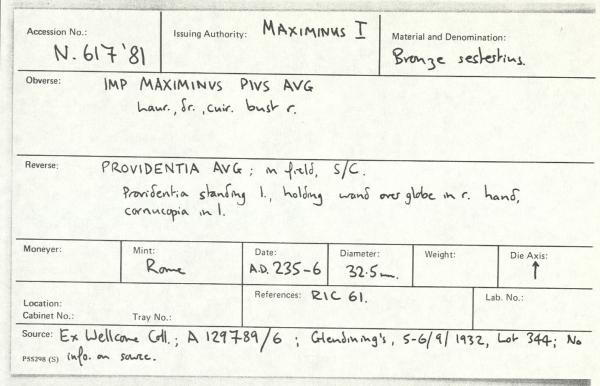 Accession No.: N.617'81
Issuing Authority: MAXIMINUS I
Material and Denomination: Bronze sestertius.
Obverse: IMP MAXIMINVS PIVS AVG
Laur., dr., cuir. bust r.
Reverse: PROVIDENTIA AVG; in field, S/C.
Providentia standing l., holding wand over globe in r. hand,
cornucopia in l.
Moneyer:
Mint: Rome
Date: A.D. 235-6
Diameter: 32.5mm.
Weight:
Die Axis: ↑
Location:
Cabinet No.: Tray No.:
References: RIC 61.
Lab. No.:
Source: Ex Wellcome Coll.; A 129789/6; Glendining's, 5-6/9/1932, Lot 344; No
PS5298 (S) info. on source.